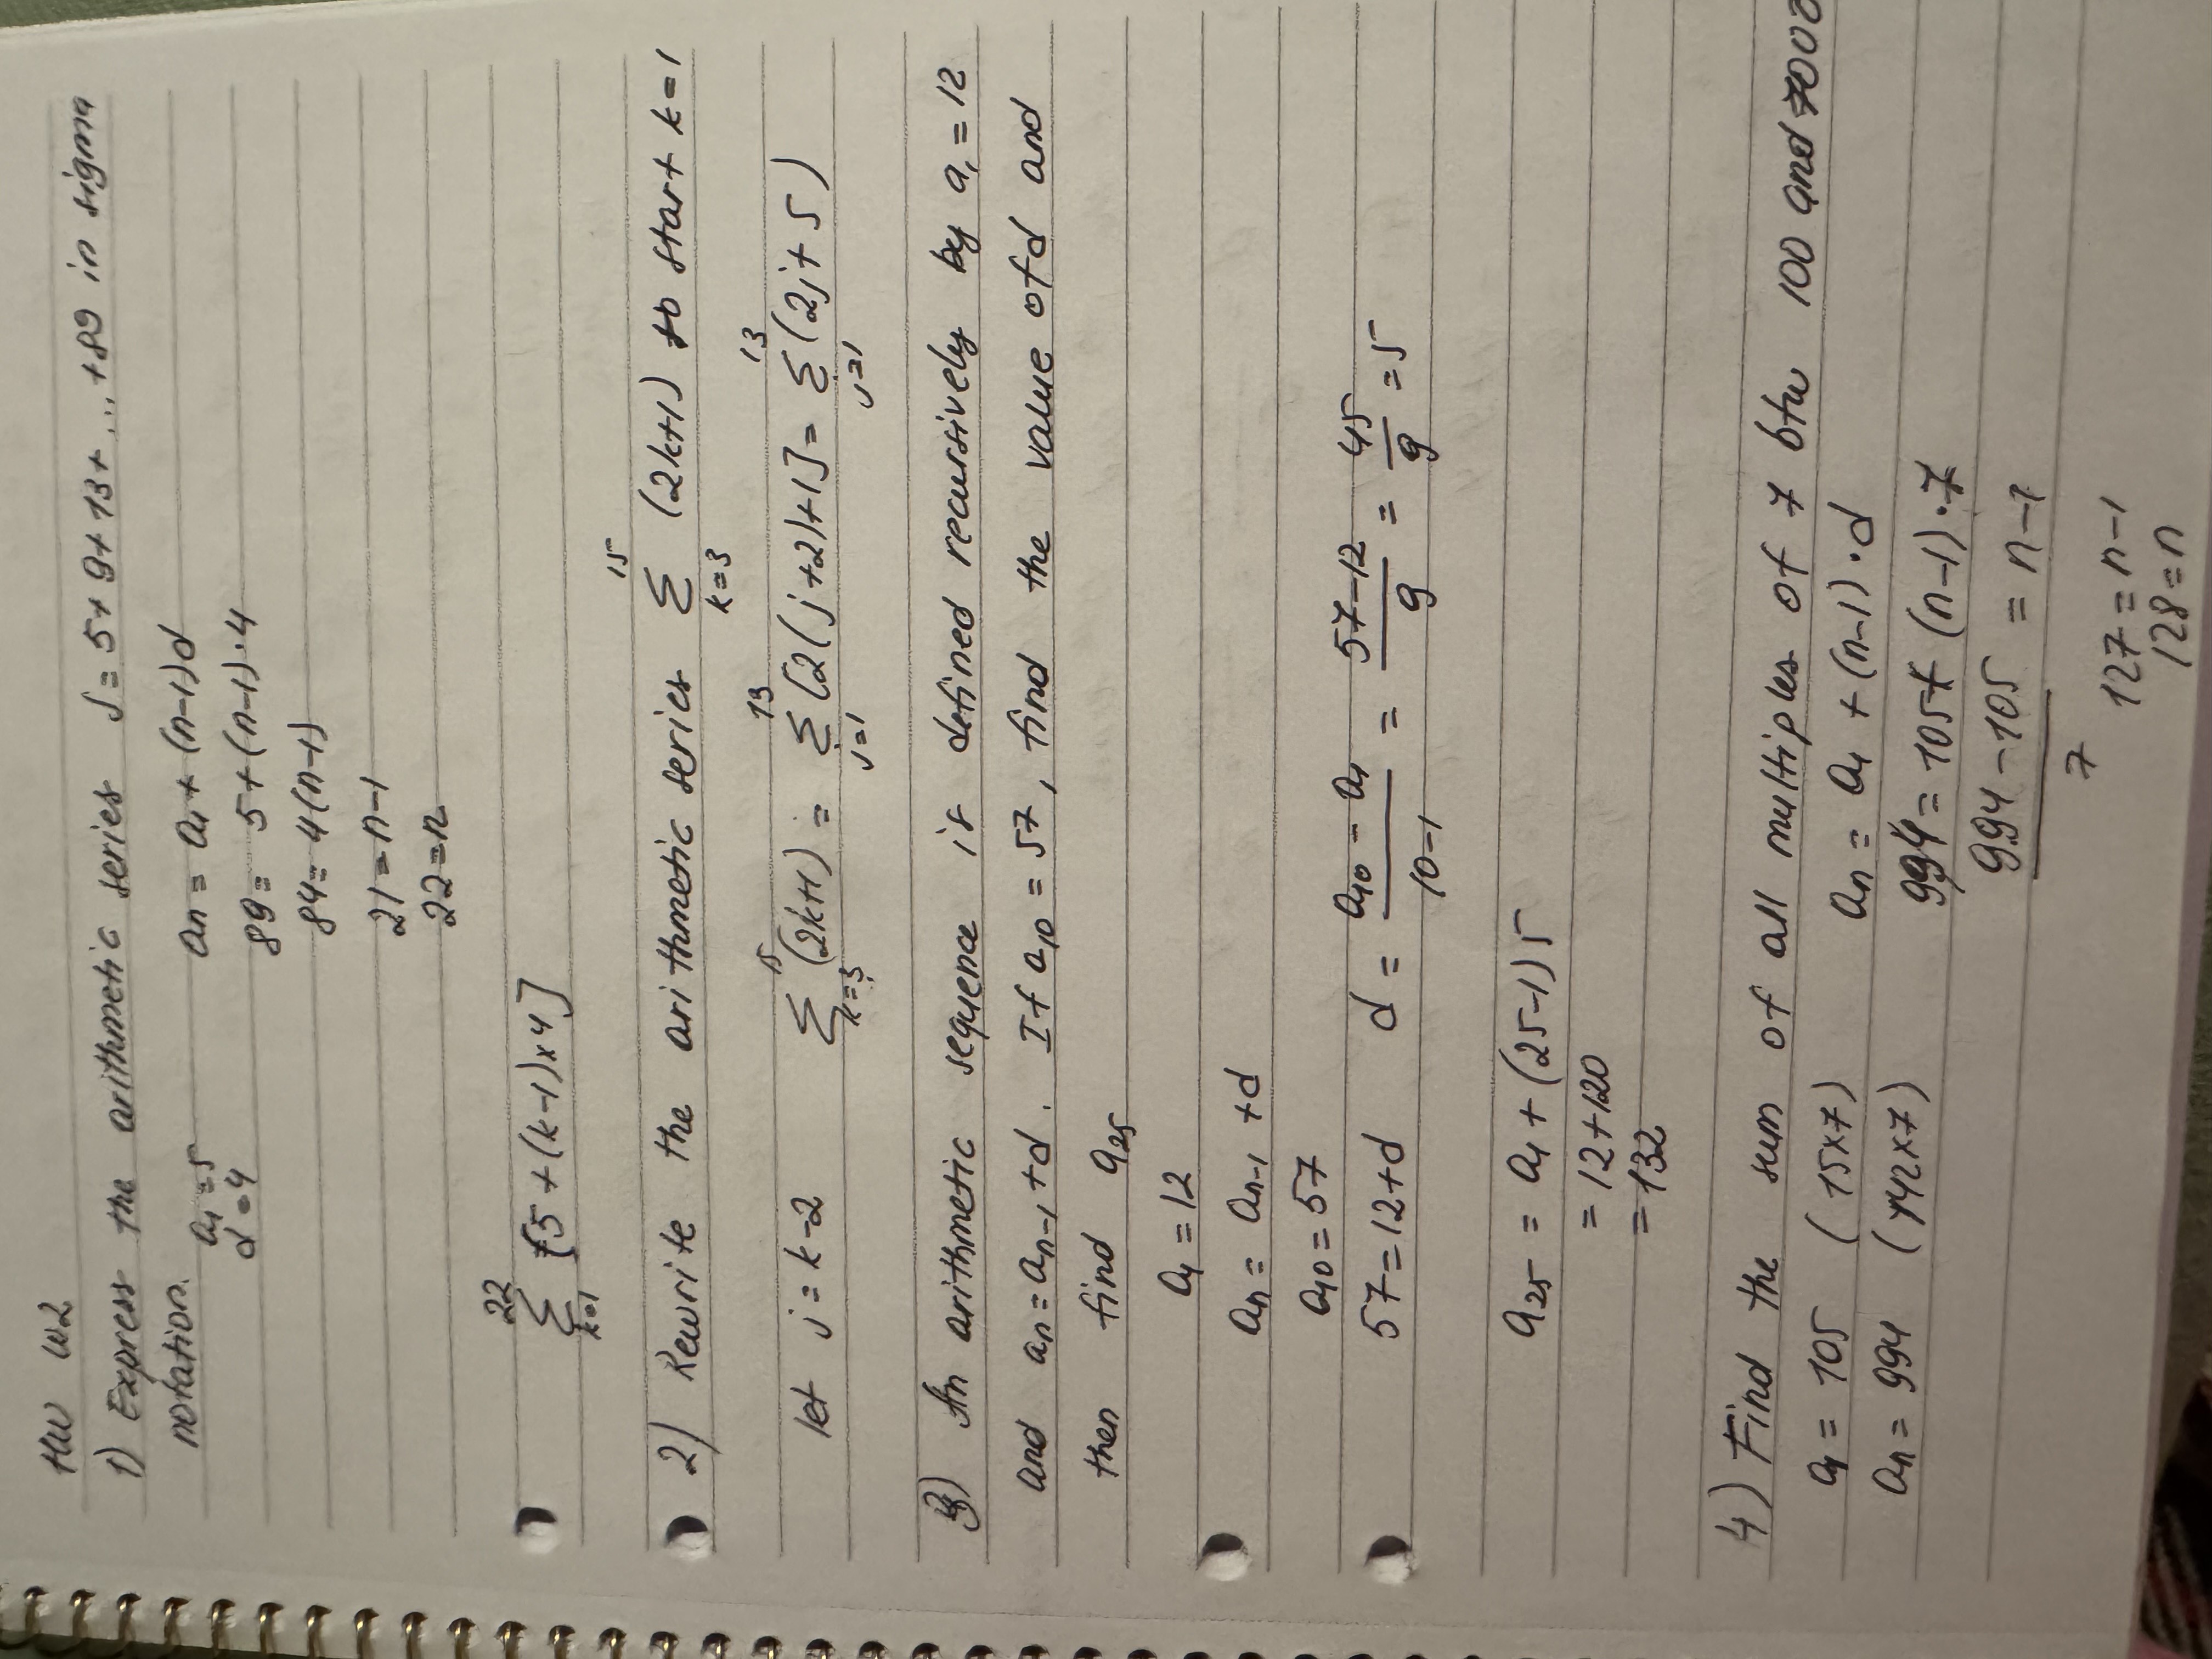 HW W2
1) Express the arithmetic series S = 5 + 9 + 13 + ... + 89 in sigma
notation.
a₁ = 5
d = 4
aₙ = a₁ + (n-1)d
89 = 5 + (n-1)·4
84 = 4(n-1)
21 = n-1
22 = n
22
Σ [5 + (k-1)×4]
k=1
2) Rewrite the arithmetic series Σ_{k=3}^{15} (2k+1) to start k=1
let j = k-2 Σ_{k=3}^{15} (2k+1) = Σ_{j=1}^{13} [2(j+2)+1] = Σ_{j=1}^{13} (2j+5)
3) An arithmetic sequence is defined recursively by a₁ = 12
and aₙ = aₙ₋₁ + d. If a₁₀ = 57, find the value of d and
then find a₂₅
a₁ = 12
aₙ = aₙ₋₁ + d
a₁₀ = 57
57 = 12+d d = (a₁₀ - a₁)/(10-1) = (57-12)/9 = 45/9 = 5
a₂₅ = a₁ + (25-1)5
= 12+120
= 132
4) Find the sum of all multiples of 7 btw 100 and 1000
a₁ = 105 (15×7)
aₙ = 994 (142×7)
aₙ = a₁ + (n-1)·d
994 = 105 + (n-1)·7
(994-105)/7 = n-1
127 = n-1
128 = n